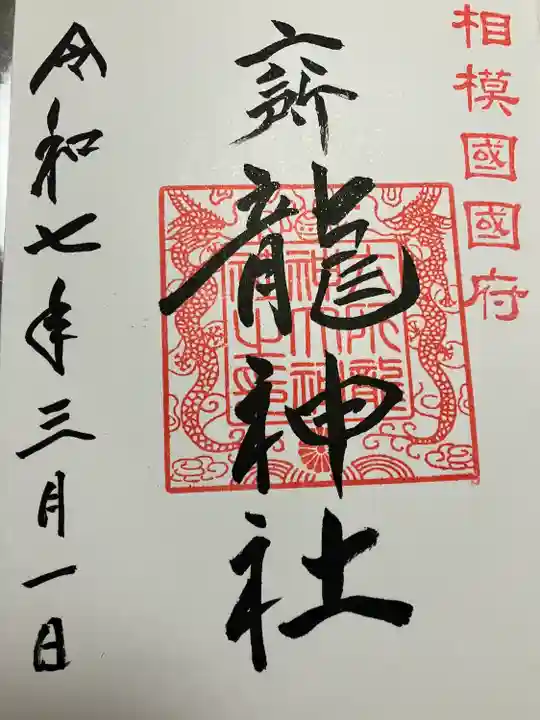 相模國國府
六所
龍神社
令和七年三月一日